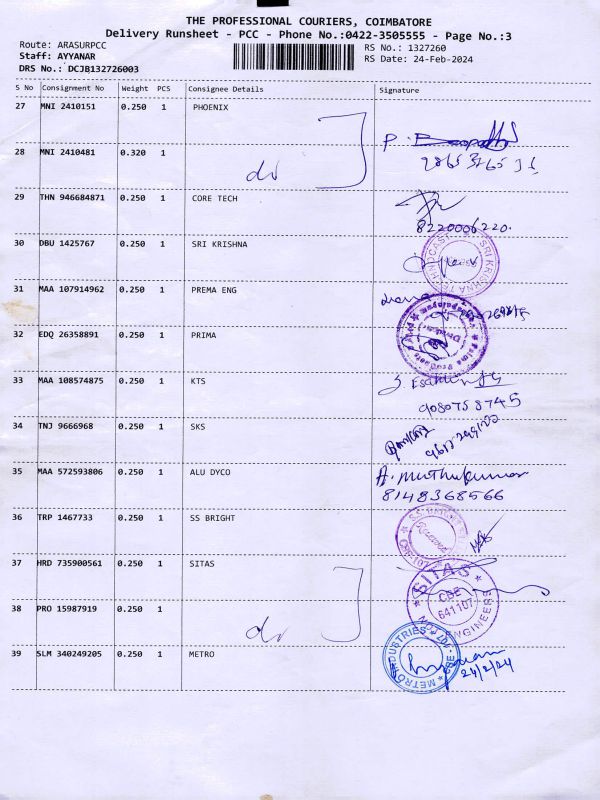 THE PROFESSIONAL COURIERS, COIMBATORE
Delivery Runsheet - PCC - Phone No.:0422-3505555 - Page No.:3
Route: ARASURPCC
RS No.: 1327260
Staff: AYYANAR
RS Date: 24-Feb-2024
DRS No.: DCJB132726003
S No Consignment No Weight PCS Consignee Details Signature
27 MNI 2410151 0.250 1 PHOENIX
28 MNI 2410481 0.320 1
29 THN 946684871 0.250 1 CORE TECH
8220006220.
30 DBU 1425767 0.250 1 SRI KRISHNA
31 MAA 107914962 0.250 1 PREMA ENG
32 EDQ 26358891 0.250 1 PRIMA
33 MAA 108574875 0.250 1 KTS
9080758745
34 TNJ 9666968 0.250 1 SKS
35 MAA 572593806 0.250 1 ALU DYCO A. Muthukumar
8148368566
36 TRP 1467733 0.250 1 SS BRIGHT
37 HRD 735900561 0.250 1 SITAS
SITAS
CBE
641107
ENGINEERS
38 PRO 15987919 0.250 1
39 SLM 340249205 0.250 1 METRO
METRO INDUSTRIES
24/2/24